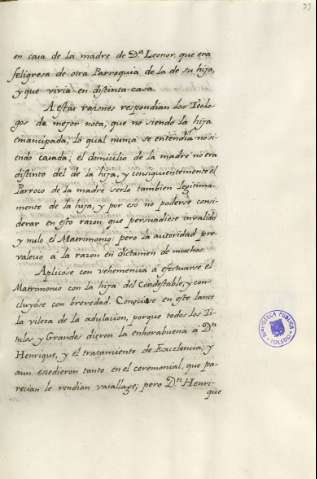 en casa de la madre de D.ª Leonor, que era
feligresa de otra Parroquia de la de su hija,
y que vivia en distinta casa.
A estas razones respondian los Teolo-
gos de mejor nota, que no siendo la hija
emancipada, lo qual nunca se entendia no si-
endo casada, el domicilio de la madre no era
distinto del de la hija, y consiguientemente el
Parroco de la madre serlo tambien legitima-
mente de la hija, y por eso no poderse consi-
derar en esto razon, que persuadiese invalido
y nulo el Matrimonio: pero la autoridad pre-
valecio a la razon en dictamen de muchos.
Aplicóse con vehemencia a efectuarse el
Matrimonio con la hija del Condestable, y con-
cluyóse con brevedad. Conociose en este lance
la vileza de la adulacion, porque todos los Ti-
tulos y Grandes dieron la enhorabuena a D.ⁿ
Henrique, y el tratamiento de Excelencia; y
aun excedieron tanto en el ceremonial, que pa-
recian le rendian vasallage; pero D.ⁿ Henri-
que
BIBLIOTECA PUBLICA
TOLEDO